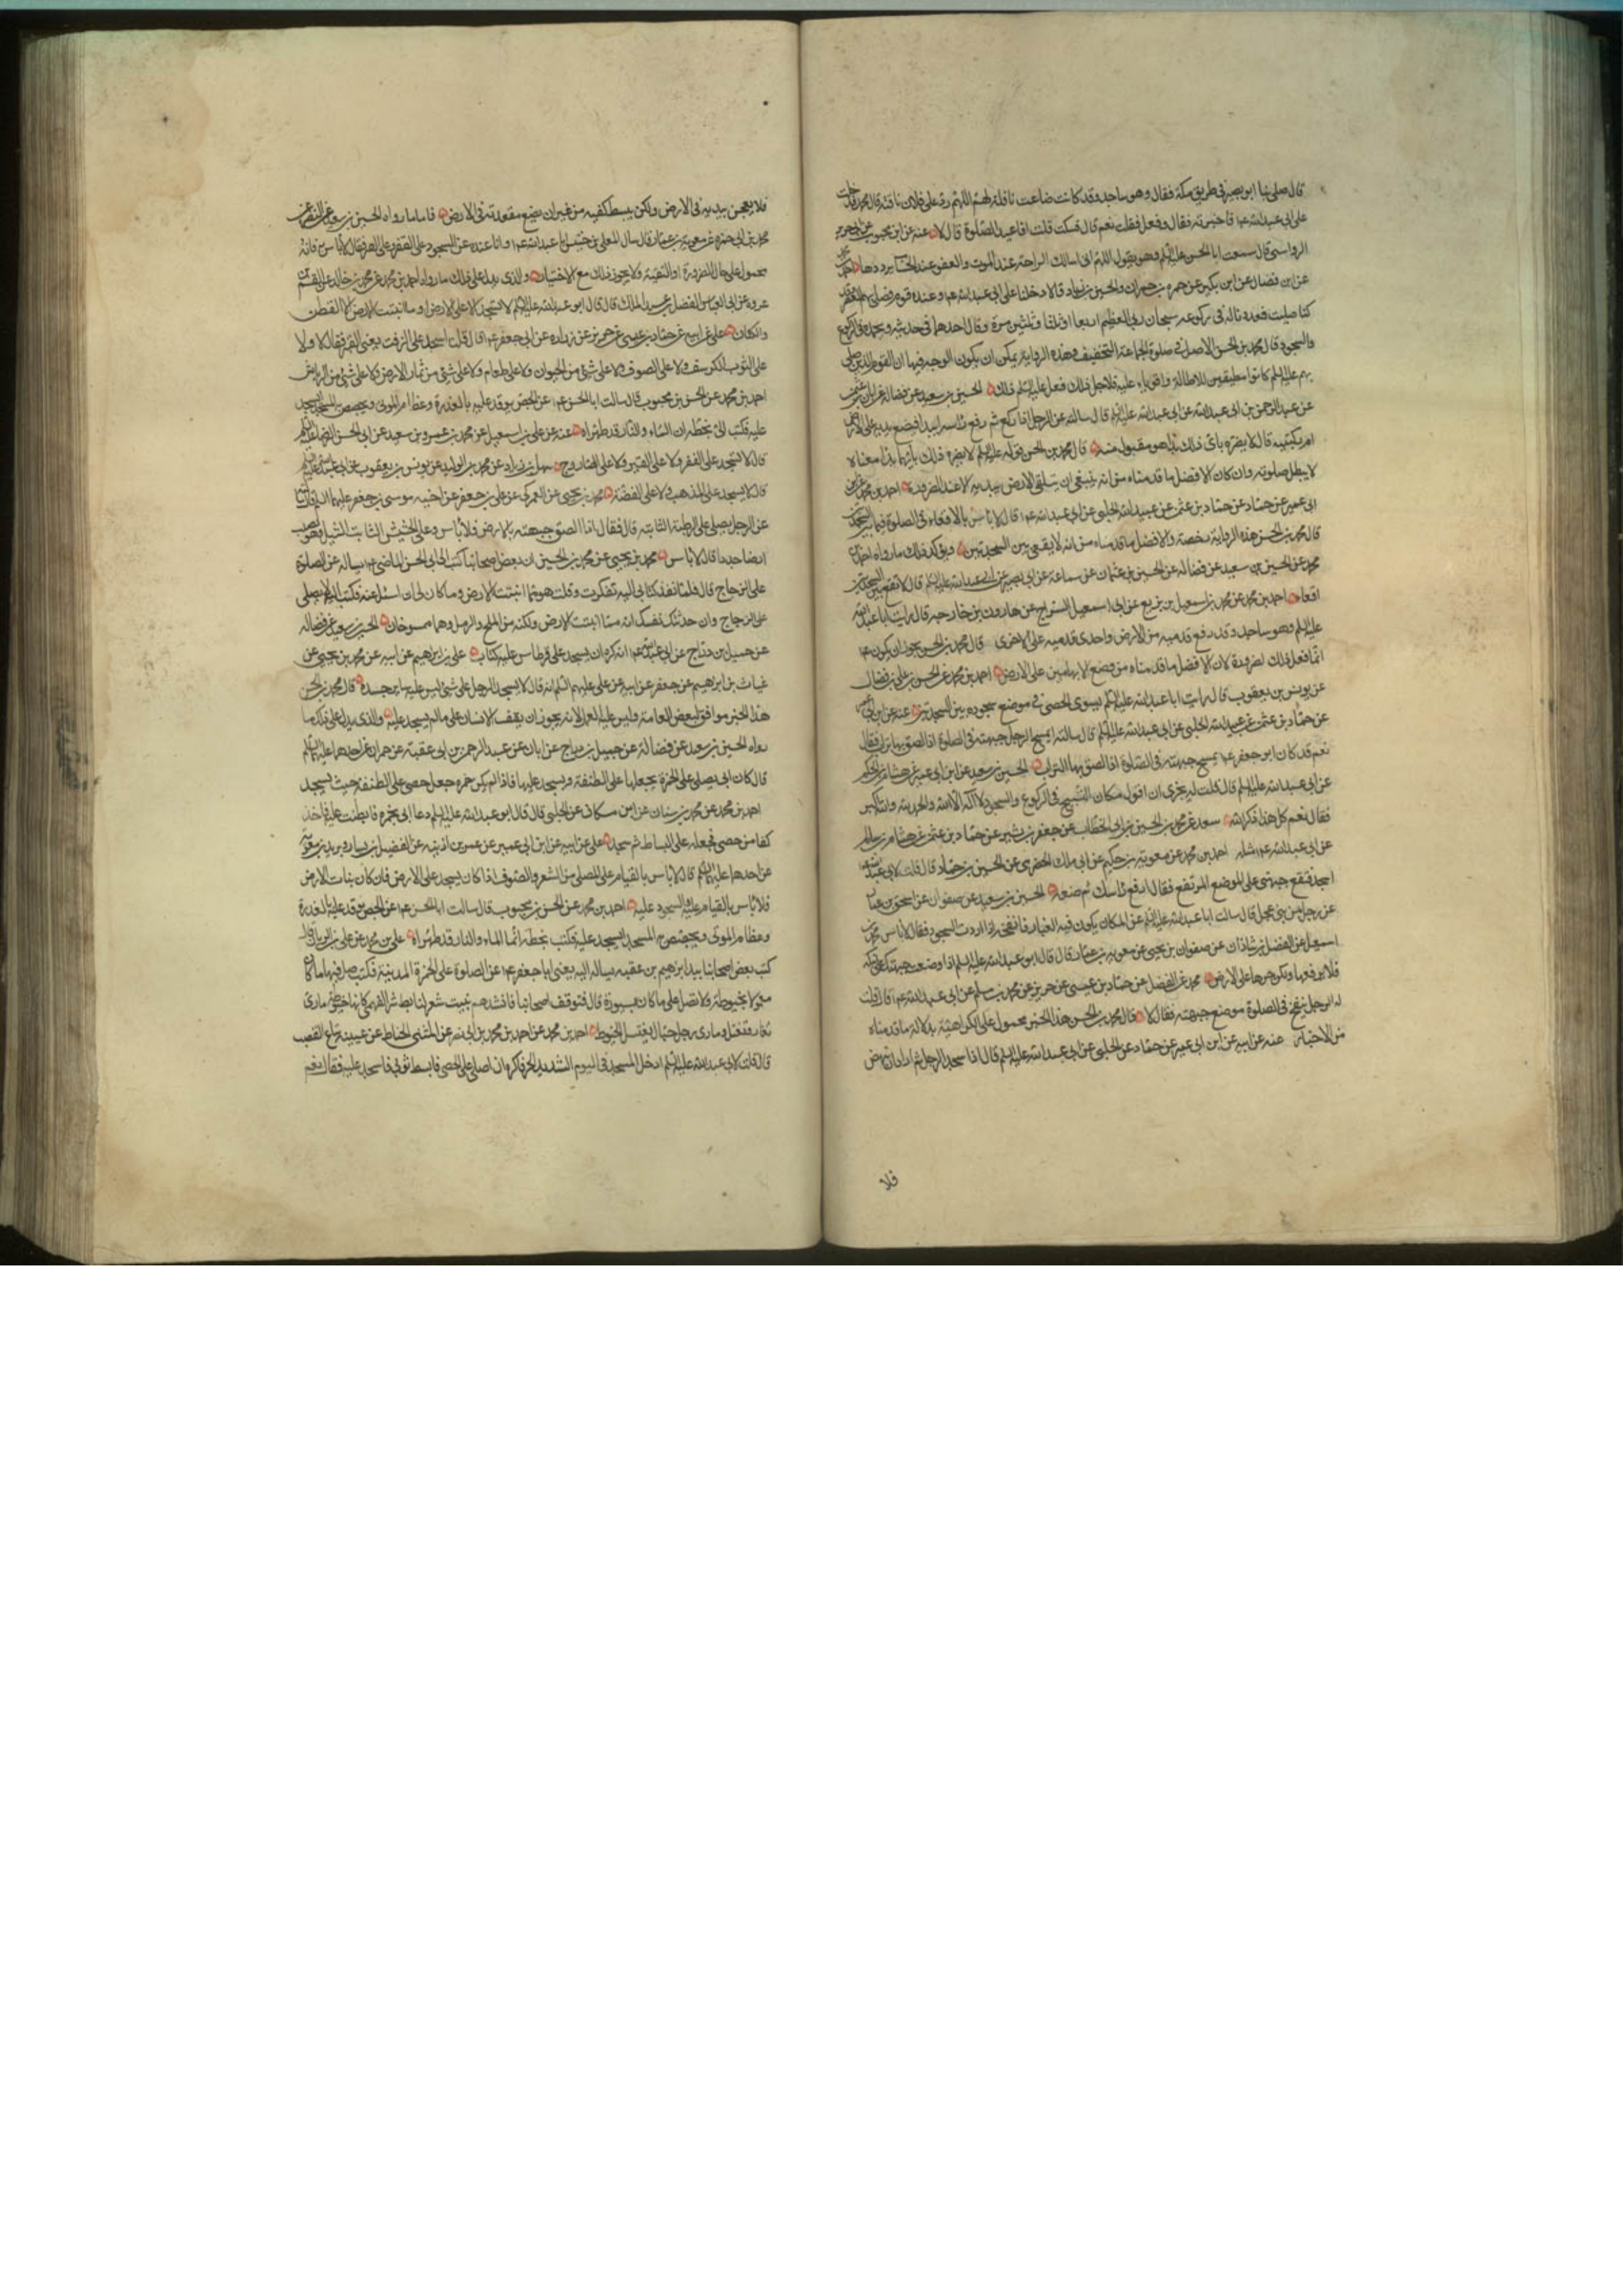 قال صلى بنا ابو بصير فى طريق مكة فقال وهو ساجد وقد كانت ضاعت ناقة لهم اللهم رد على فلان ناقته قال محمد فدخلت
على ابى عبدالله ع فاخبرته فقال وفعل فقلت نعم قال فسكت قلت افاعيد الصلوة قال لا عنه عن ابن محبوب عن
الرواسى قال سمعت ابا الحسن عليه السلم وهو يقول اللهم انى اسالك الراحة عند الموت والعفو عند الحساب يرددها
عن ابن فضال عن ابن بكير عن حمزة بن حمران والحسين بن زياد قالا دخلنا على ابى عبدالله ع وعنده قوم فصلى بهم العصر وقد
كنا صلينا فعددنا له فى ركوعه سبحان ربى العظيم اربعا او ثلثا وثلثين مرة وقال احدهما فى حديثه وبحمده فى الركوع
والسجود قال محمد بن الحسن الاصل فى صلوة الجماعة التخفيف وهذه الرواية يمكن ان يكون الوجه فيها ان القوم الذين صلى
بهم عليه السلم كانوا مطيقين للاطالة واقوياء عليه فلاجل ذلك فعل عليه السلم ذلك الحسين بن سعيد عن فضالة عن ابان
عن عبد الرحمن بن ابى عبدالله عن ابى عبدالله عليه السلم قال سالته عن الرجل اذا ركع ثم رفع راسه ابدا فيضع يديه على الارض
ام ركبتيه قال لا يضره باى ذلك بدا هو مقبول منه قال محمد بن الحسن قوله عليه السلم لا يضره ذلك بايهما بدا معناه لا
يبطل صلوته وان كان الافضل ما قدمناه من انه ينبغى ان يتلقى الارض بيديه الا عند الضرورة احمد بن محمد عن
ابى عمير عن حماد عن عبيدالله الحلبى عن ابى عبدالله ع قال لا باس بالاقعاء فى الصلوة فيما بين السجدتين
قال محمد بن الحسن هذه الرواية رخصة والافضل ما قدمناه من انه لا يقعى بين السجدتين ويؤكد ذلك ما رواه احمد بن
محمد عن الحسين بن سعيد عن فضالة عن الحسين بن عثمان عن سماعة عن ابى بصير عن ابى عبدالله عليه السلم قال لا تقع بين السجدتين
اقعاء احمد بن محمد عن محمد بن اسمعيل بن بزيع عن ابى اسمعيل السراج عن هارون بن خارجه قال رايت ابا عبدالله
عليه السلم وهو ساجد وقد رفع قدميه من الارض واحدى قدميه على الاخرى قال محمد بن الحسن يجوز ان يكون ع
انما فعل ذلك لضرورة لان الافضل ما قدمناه من وضع الابهامين على الارض احمد بن محمد عن الحسن بن على بن فضال
عن يونس بن يعقوب قال رايت ابا عبدالله عليه السلم يسوى الحصى فى موضع سجوده بين السجدتين عنه عن ابن ابى عمير
عن حماد بن عثمن عن عبيدالله الحلبى عن ابى عبدالله عليه السلم قال سالته ايمسح الرجل جبهته فى الصلوة اذا لصق بها تراب فقال
نعم قد كان ابو جعفر ع يمسح جبهته فى الصلوة اذا لصق بها التراب الحسين بن سعيد عن ابن ابى عمير عن هشام بن الحكم
عن ابى عبدالله عليه السلم قال قلت له يجزى ان اقول مكان التسبيح فى الركوع والسجود لا اله الا الله والحمد لله والله اكبر
فقال نعم كل هذا ذكر الله سعد عن محمد بن الحسين بن ابى الخطاب عن جعفر بن بشير عن حماد بن عثمن عن هشام بن سالم
عن ابى عبدالله ع مثله احمد بن محمد عن معوية بن حكيم عن ابى ملك الحضرمى عن الحسين بن حماد قال قلت لابى عبدالله
اسجد فتقع جبهتى على الموضع المرتفع فقال ارفع راسك ثم ضعه الحسين بن سعيد عن صفوان عن اسحق بن عمار
عن رجل من بنى عجل قال سالت ابا عبدالله عليه السلم عن المكان يكون فيه الغبار فانفخه اذا اردت السجود فقال لا باس محمد بن
اسمعيل عن الفضل بن شاذان عن صفوان بن يحيى عن معوية بن عمار قال قال ابو عبدالله عليه السلم اذا وضعت جبهتك على نبكة
فلا ترفعها ولكن جرها على الارض محمد عن الفضل عن حماد بن عيسى عن حريز عن محمد بن مسلم عن ابى عبدالله ع قال قلت
له الرجل ينفخ فى الصلوة موضع جبهته فقال لا قال محمد بن الحسن هذا الخبر محمول على الكراهية بدلالة ما قدمناه
من الاخبار عنه عن ابيه عن ابن ابى عمير عن حماد عن الحلبى عن ابى عبدالله عليه السلم قال اذا سجد الرجل ثم اراد ان ينهض
فلا
فلا يعجن بيديه فى الارض ولكن يبسط كفيه من غير ان يضع مقعدته فى الارض فاما ما رواه الحسين بن سعيد عن النضر عن
محمد بن ابى حمزة عن معوية بن عمار قال سال المعلى بن خنيس ابا عبدالله ع وانا عنده عن السجود على القفر وعلى القير فقال لا باس فانه
محمول على حال الضرورة او التقية ولا يجوز ذلك مع الاختيار والذى يدل على ذلك ما رواه احمد بن محمد عن محمد بن خالد عن القسم بن
عروة عن ابى العباس الفضل بن عبد الملك قال قال ابو عبدالله عليه السلم لا تسجد الا على الارض او ما انبتت الارض الا القطن
والكتان على عن ابيه عن حماد بن عيسى عن حريز عن زرارة عن ابى جعفر ع قال قلت اسجد على الزفت يعنى القير فقال لا ولا
على الثوب الكرسف ولا على الصوف ولا على شئ من الحيوان ولا على طعام ولا على شئ من ثمار الارض ولا على شئ من الرياش
احمد بن محمد عن الحسن بن محبوب قال سالت ابا الحسن ع عن الجص يوقد عليه بالعذرة وعظام الموتى ويجصص به المسجد ايسجد
عليه فكتب الى بخطه ان الماء والنار قد طهراه عنه عن على بن اسمعيل عن محمد بن عمرو بن سعيد عن ابى الحسن الرضا عليه السلم
قال لا تسجد على القفر ولا على القير ولا على الصاروج سهل بن زياد عن محمد بن الوليد عن يونس بن يعقوب عن ابى عبدالله عليه السلم
قال لا يسجد على الذهب ولا على الفضة محمد بن يحيى عن العمركى عن على بن جعفر عن اخيه موسى بن جعفر عليهما السلم قال سالته
عن الرجل يصلى على الرطبة النابتة قال فقال اذا الصق جبهته بالارض فلا باس وعلى الحشيش النابت الثيل وهو يصيب
ارضا جددا قال لا باس محمد بن يحيى عن محمد بن الحسين ان بعض اصحابنا كتب الى ابى الحسن الماضى ع يساله عن الصلوة
على الزجاج قال فلما نفذ كتابى اليه تفكرت وقلت هو مما انبتت الارض وما كان لى ان اسئل عنه فكتب الى لا تصلى
على الزجاج وان حدثتك نفسك انه مما انبتت الارض ولكنه من الملح والرمل وهما ممسوخان الحسين بن سعيد عن فضالة
عن جميل بن دراج عن ابى عبدالله ع انه كره ان يسجد على قرطاس عليه كتاب على بن ابرهيم عن ابيه عن محمد بن يحيى عن
غياث بن ابرهيم عن جعفر عن ابيه عن على عليهم السلم انه قال لا يسجد الرجل على شئ ليس عليه ساير جسده قال محمد بن الحسن
هذا الخبر موافق لبعض العامة وليس عليه العمل لانه يجوز ان يقف الانسان على ما لم يسجد عليه والذى يدل على ذلك ما
رواه الحسين بن سعيد عن فضالة عن جميل بن دراج عن ابان عن عبد الرحمن بن ابى عقبة عن حمران عن احدهما عليهما السلم
قال كان ابى يصلى على الخمرة يجعلها على الطنفسة ويسجد عليها فاذا لم يكن خمرة جعل حصى على الطنفسة حيث يسجد
احمد بن محمد عن محمد بن سنان عن ابن مسكان عن الحلبى قال قال ابو عبدالله عليه السلم دعا ابى بخمرة فابطئت عليه فاخذ
كفا من حصى فجعله على البساط ثم سجد على عن ابيه عن ابن ابى عمير عن عمر بن اذينه عن الفضيل بن يسار وبريد بن معوية
عن احدهما عليهما السلم قال لا باس بالقيام على المصلى من الشعر والصوف اذا كان يسجد على الارض فان كان نبات الارض
فلا باس بالقيام عليه والسجود عليه احمد بن محمد عن الحسن بن محبوب قال سالت ابا الحسن ع عن الجص يوقد عليه بالعذرة
وعظام الموتى ويجصص به المسجد ايسجد عليه فكتب بخطه انما الماء والنار قد طهراه على بن محمد عن على بن الريان قال
كتب بعض اصحابنا بيد ابرهيم بن عقبه يساله اليه يعنى ابا جعفر ع عن الصلوة على الخمرة المدينية فكتب صل فيها ما كان
معمولا بخيوطة ولا تصل على ما كان بسيورة قال فتوقف اصحابنا فانشدهم بيت شعر لتابط شرا الفهمى كانها خيوطة مارى
تغار وتفتل ومارى رجل حبال يفتل الخيوط احمد بن محمد عن احمد بن محمد بن ابى نصر عن المثنى الحناط عن عيينة بياع القصب
قال قلت لابى عبدالله عليه السلم ادخل المسجد فى اليوم الشديد الحر فاكره ان اصلى على الحصى فابسط ثوبى فاسجد عليه فقال نعم